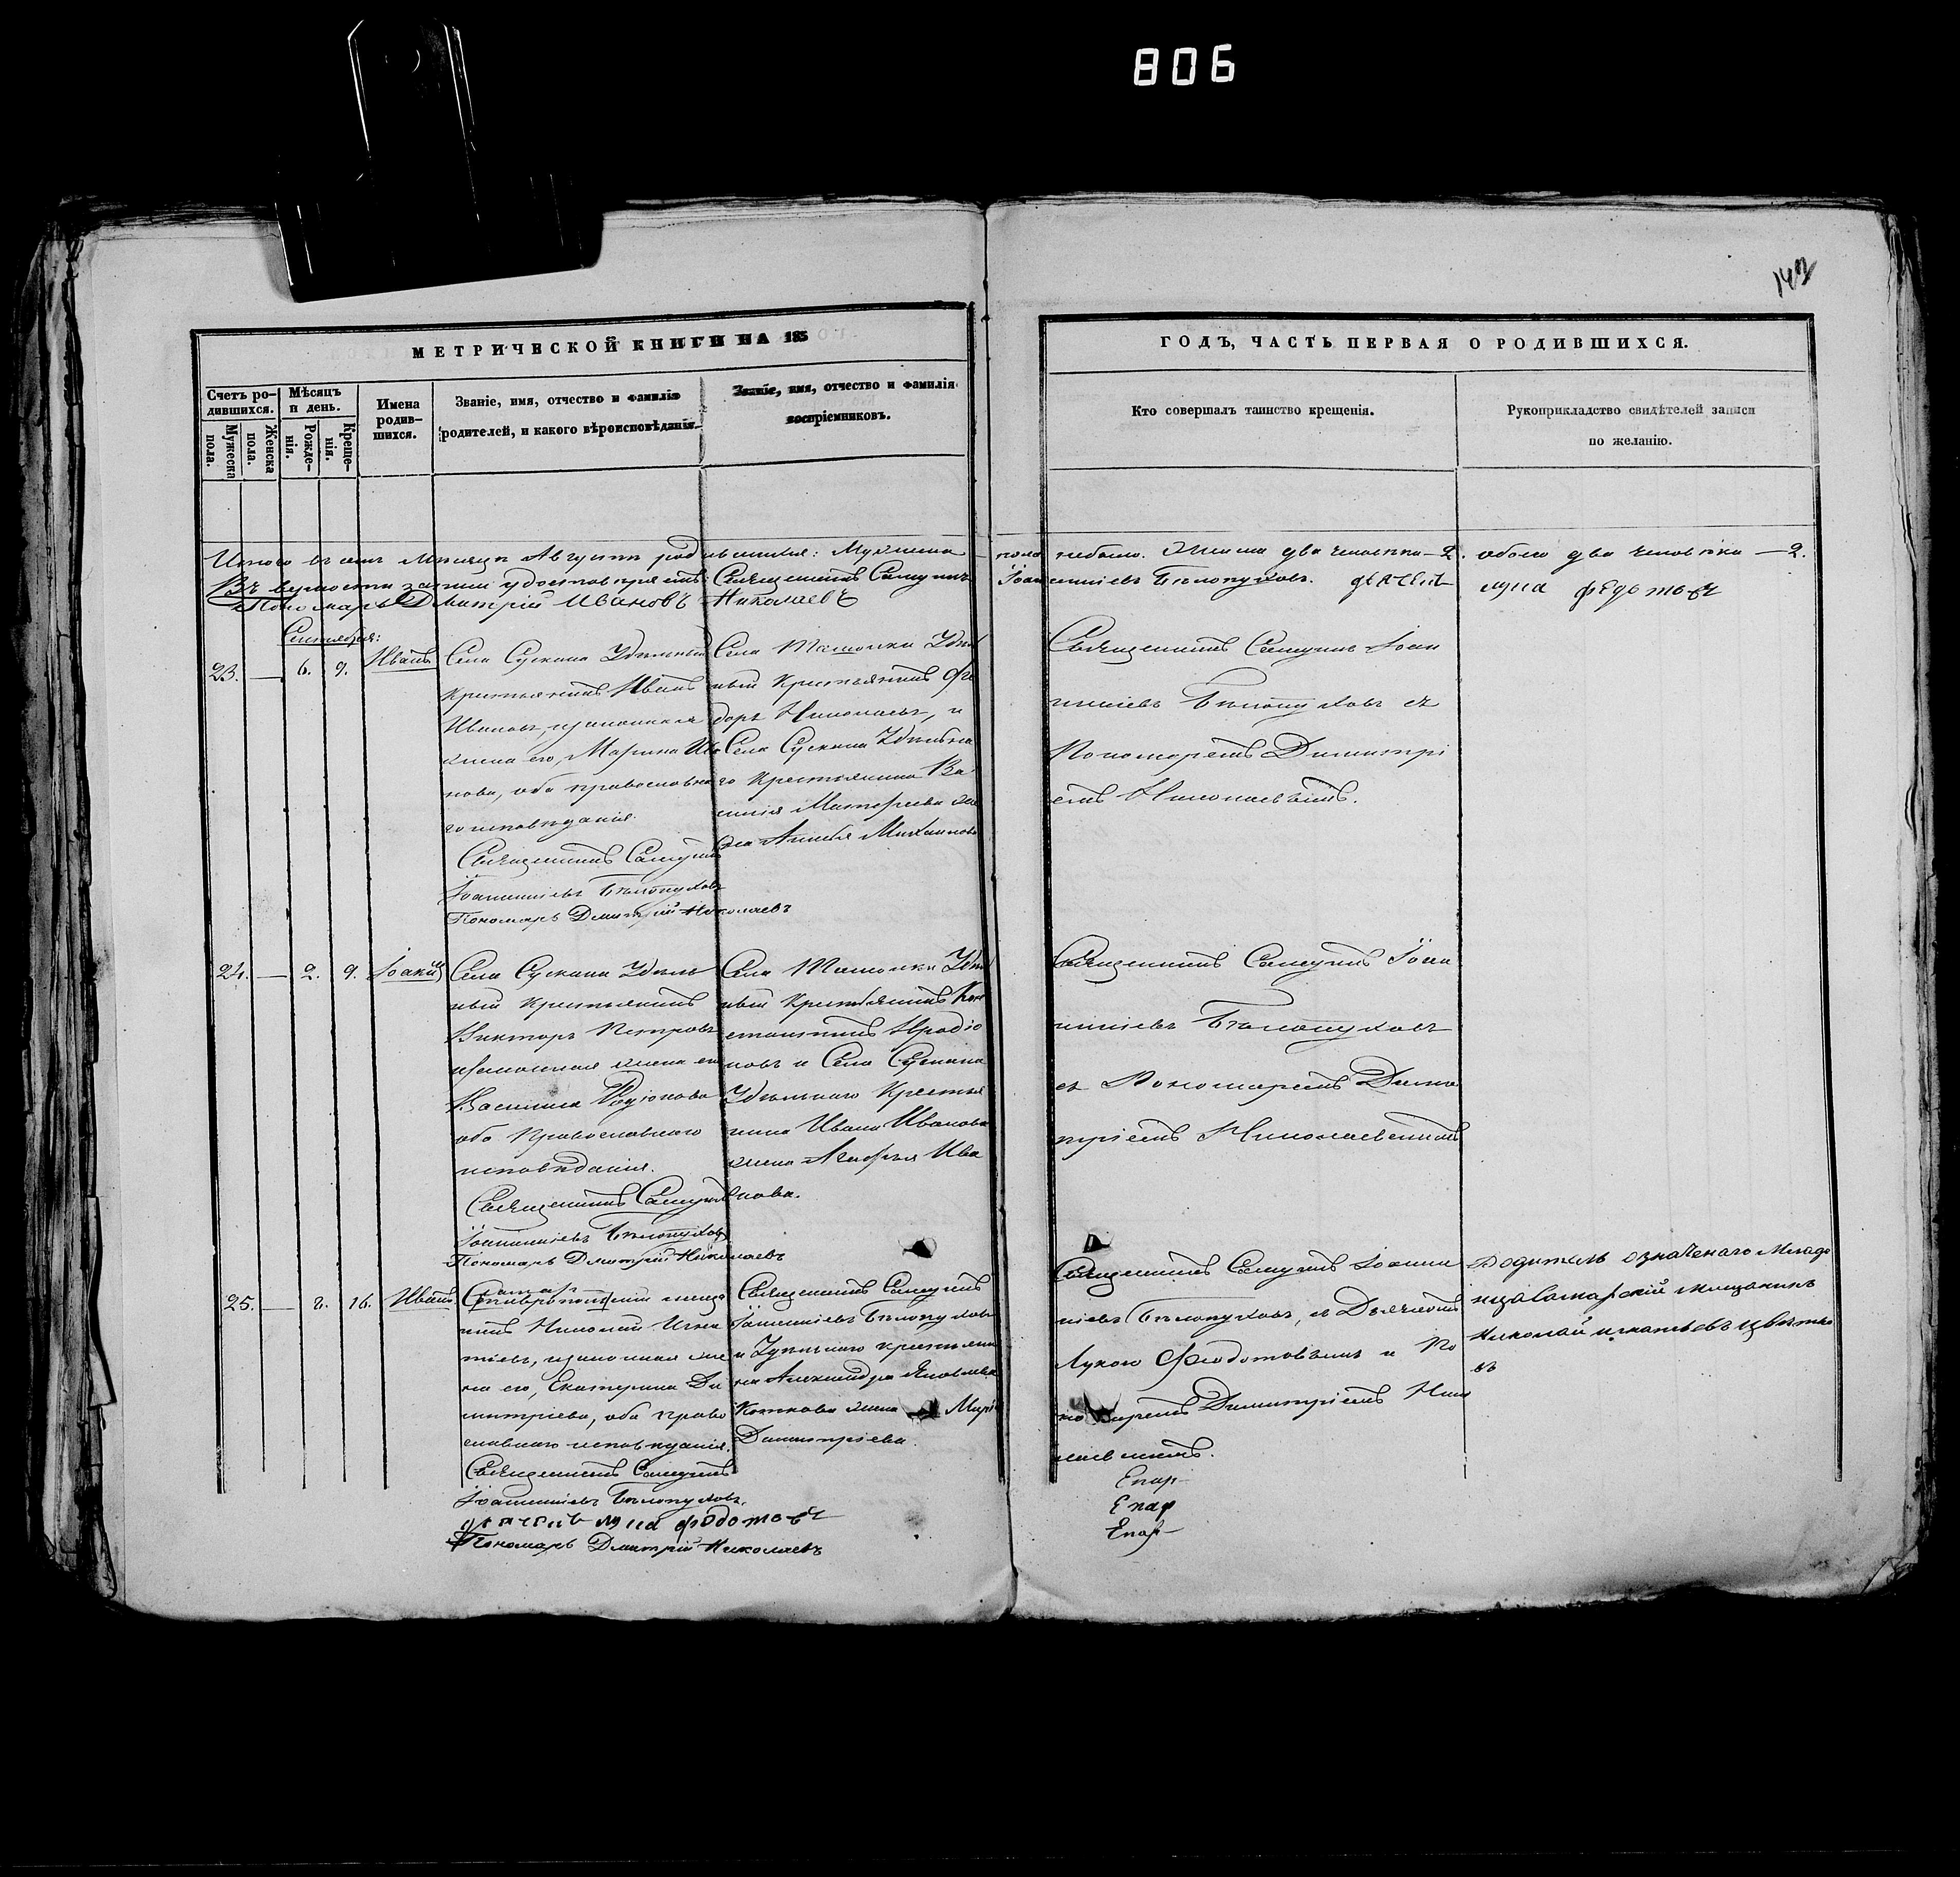 806
142
МЕТРИЧЕСКОЙ КНИГИ НА 185
ГОДЪ, ЧАСТЬ ПЕРВАЯ О РОДИВШИХСЯ.
Счетъ ро-
дившихся.
Мужеска
пола.
Женска
пола.
Мѣсяцъ
и день.
Рожде-
нія.
Креще-
нія.
Имена
родив-
шихся.
Званіе, имя, отчество и фамилія
родителей, и какого вѣроисповѣданія.
Званіе, имя, отчество и фамилія
воспріемниковъ.
Кто совершалъ таинство крещенія.
Рукоприкладство свидѣтелей записи
по желанію.
Итого въ семъ Мѣсяцѣ Августѣ родившихся: Мужеска пола небыло. Женска два человѣка — 2. обоего два человѣка — 2.
Въ верности записи удостовѣряетъ: Священникъ Самуилъ Іоанникіевъ Бѣлопуховъ. дьячекъ лука федотовъ
Пономарь Дмитрій Ивановъ Николаевъ
Сентября:
23. — 6. 9. Иванъ
Села Сускана Удѣльный
крестьянинъ Иванъ
Ивановъ, и законная
жена его Марина Ива
нова, оба православна
го исповѣданія.
Священникъ Самуилъ
Іоанникіевъ Бѣлопуховъ
Пономарь Дмитрій Николаевъ
Села Ташолки Удѣл
ный Крестьянинъ Фе
доръ Николаевъ, и
Села Сускана Удѣльна
го Крестьянина Ва
силія Матвѣева же
на Анисья Михаилова
Священникъ Самуилъ Іоан
никіевъ Бѣлопуховъ съ
Пономаремъ Димитрі
емъ Николаевымъ.
24. — 2. 9. Іоакимъ
Села Сускана Удѣль
ный крестьянинъ
Викторъ Петровъ
и законная жена его
Василиса Родіонова
оба Православнаго
исповѣданія.
Священникъ Самуилъ
Іоанникіевъ Бѣлопуховъ
Пономарь Дмитрій Николаевъ
Села Ташолки Удѣл
ный Крестьянинъ Кон
стантинъ Иродіо
новъ и Села Сускана
Удѣльнаго Крестья
нина Ивана Иванова
жена Агафья Ива
нова.
Священникъ Самуилъ Іоан
никіевъ Бѣлопуховъ
съ Пономаремъ Дими
тріемъ Николаевымъ
25. — 8. 16. Иванъ.
Самар
Ставропольскій меща
нинъ Николай Игна
тіевъ, и законная же
на его, Екатерина Ди
митріева, оба право
славнаго исповѣданія.
Священникъ Самуилъ
Іоанникіевъ Бѣлопуховъ.
дьячекъ лука федотовъ
Пономарь Дмитрій Николаевъ
Священникъ Самуилъ
Іоанникіевъ Бѣлопуховъ
и Удѣльнаго крестьяни
на Александра Яковлева
жена Марія
Димитріева.
Священникъ Самуилъ Іоанни
кіевъ Бѣлопуховъ, съ Дьячкомъ
Лукою Федотовымъ и По
номаремъ Димитріемъ Нико
лаевымъ.
Родитель означенаго Младе
нца Самарскій мещанинъ
Николай игнатьевъ цветко
въ
Епар
Епар
Епар